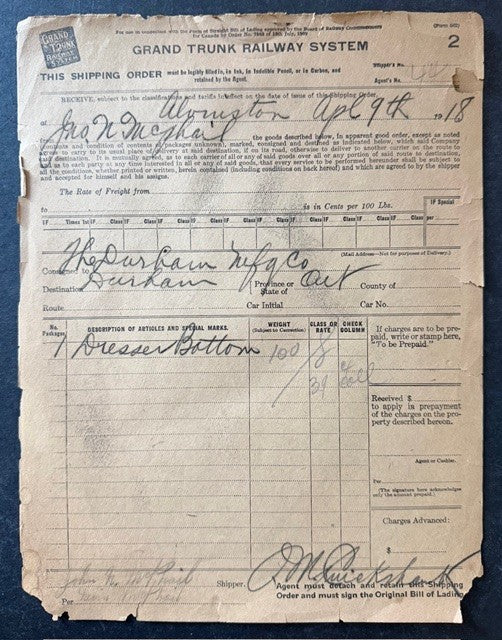 GRAND TRUNK RAILWAY SYSTEM
For use in connection with the Form of Straight Bill of Lading approved by the Board of Railway Commissioners
for Canada by Order No. 7562 of 15th July, 1909
(Form
GRAND TRUNK RAILWAY SYSTEM 2
THIS SHIPPING ORDER must be legibly filled in, in Ink, in Indelible Pencil, or in Carbon, and
retained by the Agent.
Shipper's No.
Agent's No.
RECEIVE, subject to the classifications and tariffs in effect on the date of issue of this Shipping Order.
at Alvinston Apl 9th 1918
from Jno N. McPhail the goods described below, in apparent good order, except as noted
(contents and condition of contents of packages unknown), marked, consigned and destined as indicated below, which said Company
agrees to carry to its usual place of delivery at said destination, if on its road, otherwise to deliver to another carrier on the route to
said destination. It is mutually agreed, as to each carrier of all or any of said goods over all or any portion of said route to destination
and as to each party at any time interested in all or any of said goods, that every service to be performed hereunder shall be subject to
all the conditions, whether printed or written, herein contained (including conditions on back hereof) and which are agreed to by the shipper and
accepted for himself and his assigns.
The Rate of Freight from
to is in Cents per 100 Lbs.
IF Special
IF Times 1st IF Class IF Class IF Class IF Class IF Class IF Class IF Class IF Class per
(Mail Address—Not for purposes of Delivery.)
Consigned to The Durham Mfg Co
Destination Durham Province or State of Ont County of
Route Car Initial Car No.
No. Packages DESCRIPTION OF ARTICLES AND SPECIAL MARKS. WEIGHT (Subject to Correction) CLASS OR RATE CHECK COLUMN
1 Dresser Bottom 100
If charges are to be pre-
paid, write or stamp here,
"To be Prepaid."
Received $
to apply in prepayment
of the charges on the pro-
perty described hereon.
Agent or Cashier.
Per
(The signature here acknowledges
only the amount prepaid.)
Charges Advanced:
$
John N. McPhail Shipper.
Per
Agent must detach and retain this Shipping
Order and must sign the Original Bill of Lading